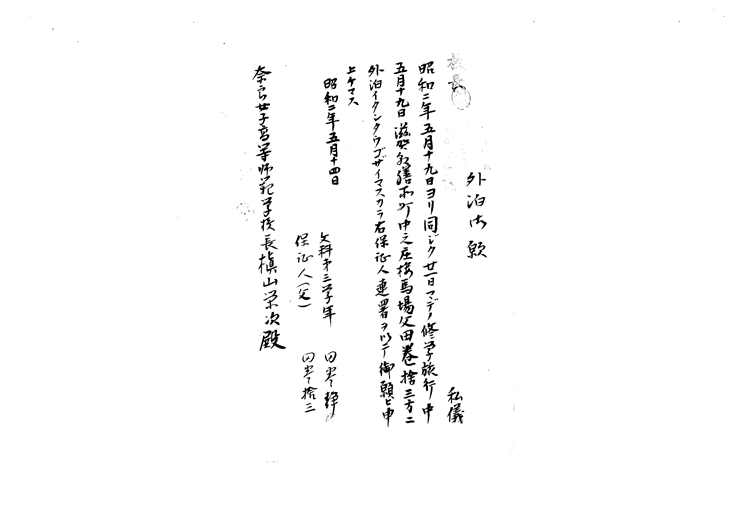 校長
外泊御願
私儀
昭和二年五月十九日ヨリ同ジク廿一日マデノ修学旅行中
五月十九日滋賀県膳所町中之庄桜馬場父田巻捨三方ニ
外泊イタシタウゴザイマスカラ右保証人連署ヲ以テ御願ヒ申
上ゲマス
昭和二年五月十四日
文科第三学年 田巻静
保証人(父) 田巻捨三
奈良女子高等師範学校長槇山栄次殿